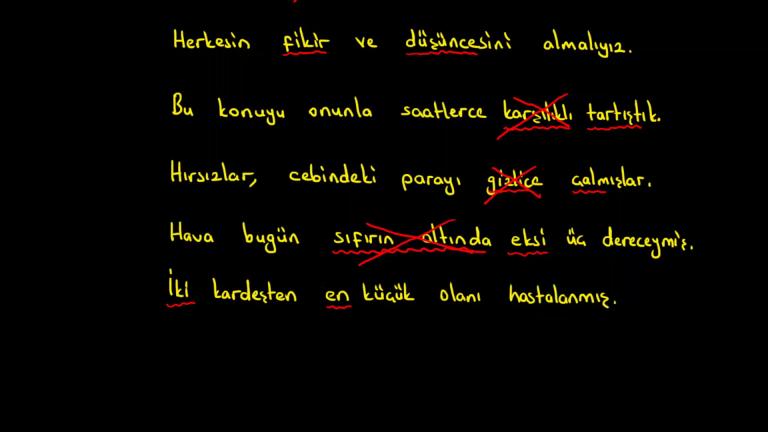 Herkesin fikir ve düşüncesini almalıyız.
Bu konuyu onunla saatlerce karşılıklı tartıştık.
Hırsızlar, cebindeki parayı gizlice çalmışlar.
Hava bugün sıfırın altında eksi üç dereceymiş.
İki kardeşten en küçük olanı hastalanmış.